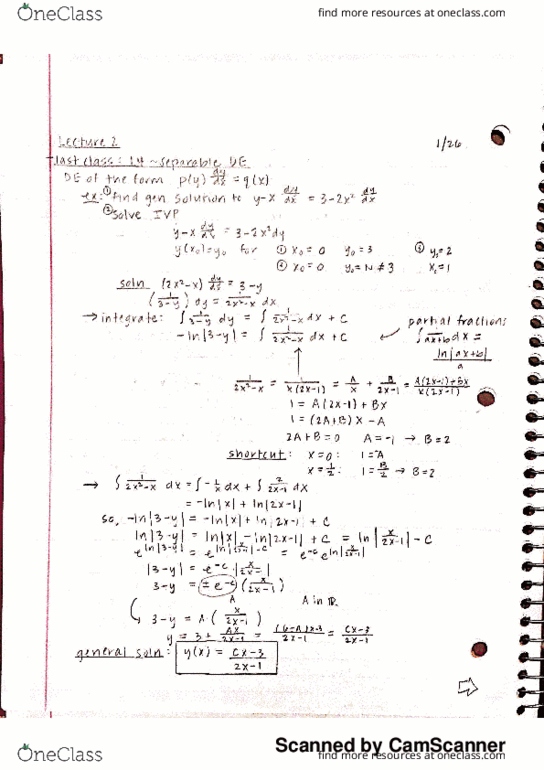 OneClass
find more resources at oneclass.com
Lecture 2
1/26
last class: 1.4 ~ separable DE
DE of the form p(y) dy/dx = q(x)
ex: ① find gen solution to y-x dy/dx = 3-2x² dy/dx
② solve IVP
y-x dy/dx = 3-2x² dy
y(x₀)=y₀ for ① x₀=0 y₀=3
② x₀=0 y₀=N≠3
y₀=2
x₀=1
soln (2x²-x) dy/dx = 3-y
(1/3-y) dy = 1/2x²-x dx
→ integrate: ∫ 1/3-y dy = ∫ 1/2x²-x dx + C
-ln|3-y| = ∫ 1/2x²-x dx + C
partial fractions
∫ 1/ax+b dx =
ln|ax+b|/a
1/2x²-x = 1/x(2x-1) = A/x + B/2x-1 = A(2x-1)+Bx/x(2x-1)
1 = A(2x-1) + Bx
1 = (2A+B)x - A
2A+B=0 A=-1 → B=2
shortcut: x=0: 1=-A
x=1/2: 1=B/2 → B=2
→ ∫ 1/2x²-x dx = ∫-1/x dx + ∫ 2/2x-1 dx
= -ln|x| + ln|2x-1|
so, -ln|3-y| = -ln|x| + ln|2x-1| + C
ln|3-y| = ln|x| - ln|2x-1| + C = ln|x/2x-1| - C
e^ln|3-y| = e^ln|x/2x-1|-C = e^-C e^ln|x/2x-1|
|3-y| = e^-C |x/2x-1|
3-y = ±e^-C (x/2x-1)
A
A in ℝ
3-y = A(x/2x-1)
y = 3+ Ax/2x-1 = (6-A)x-3/2x-1 = Cx-3/2x-1
general soln: y(x) = Cx-3/2x-1
Scanned by CamScanner
OneClass
find more resources at oneclass.com